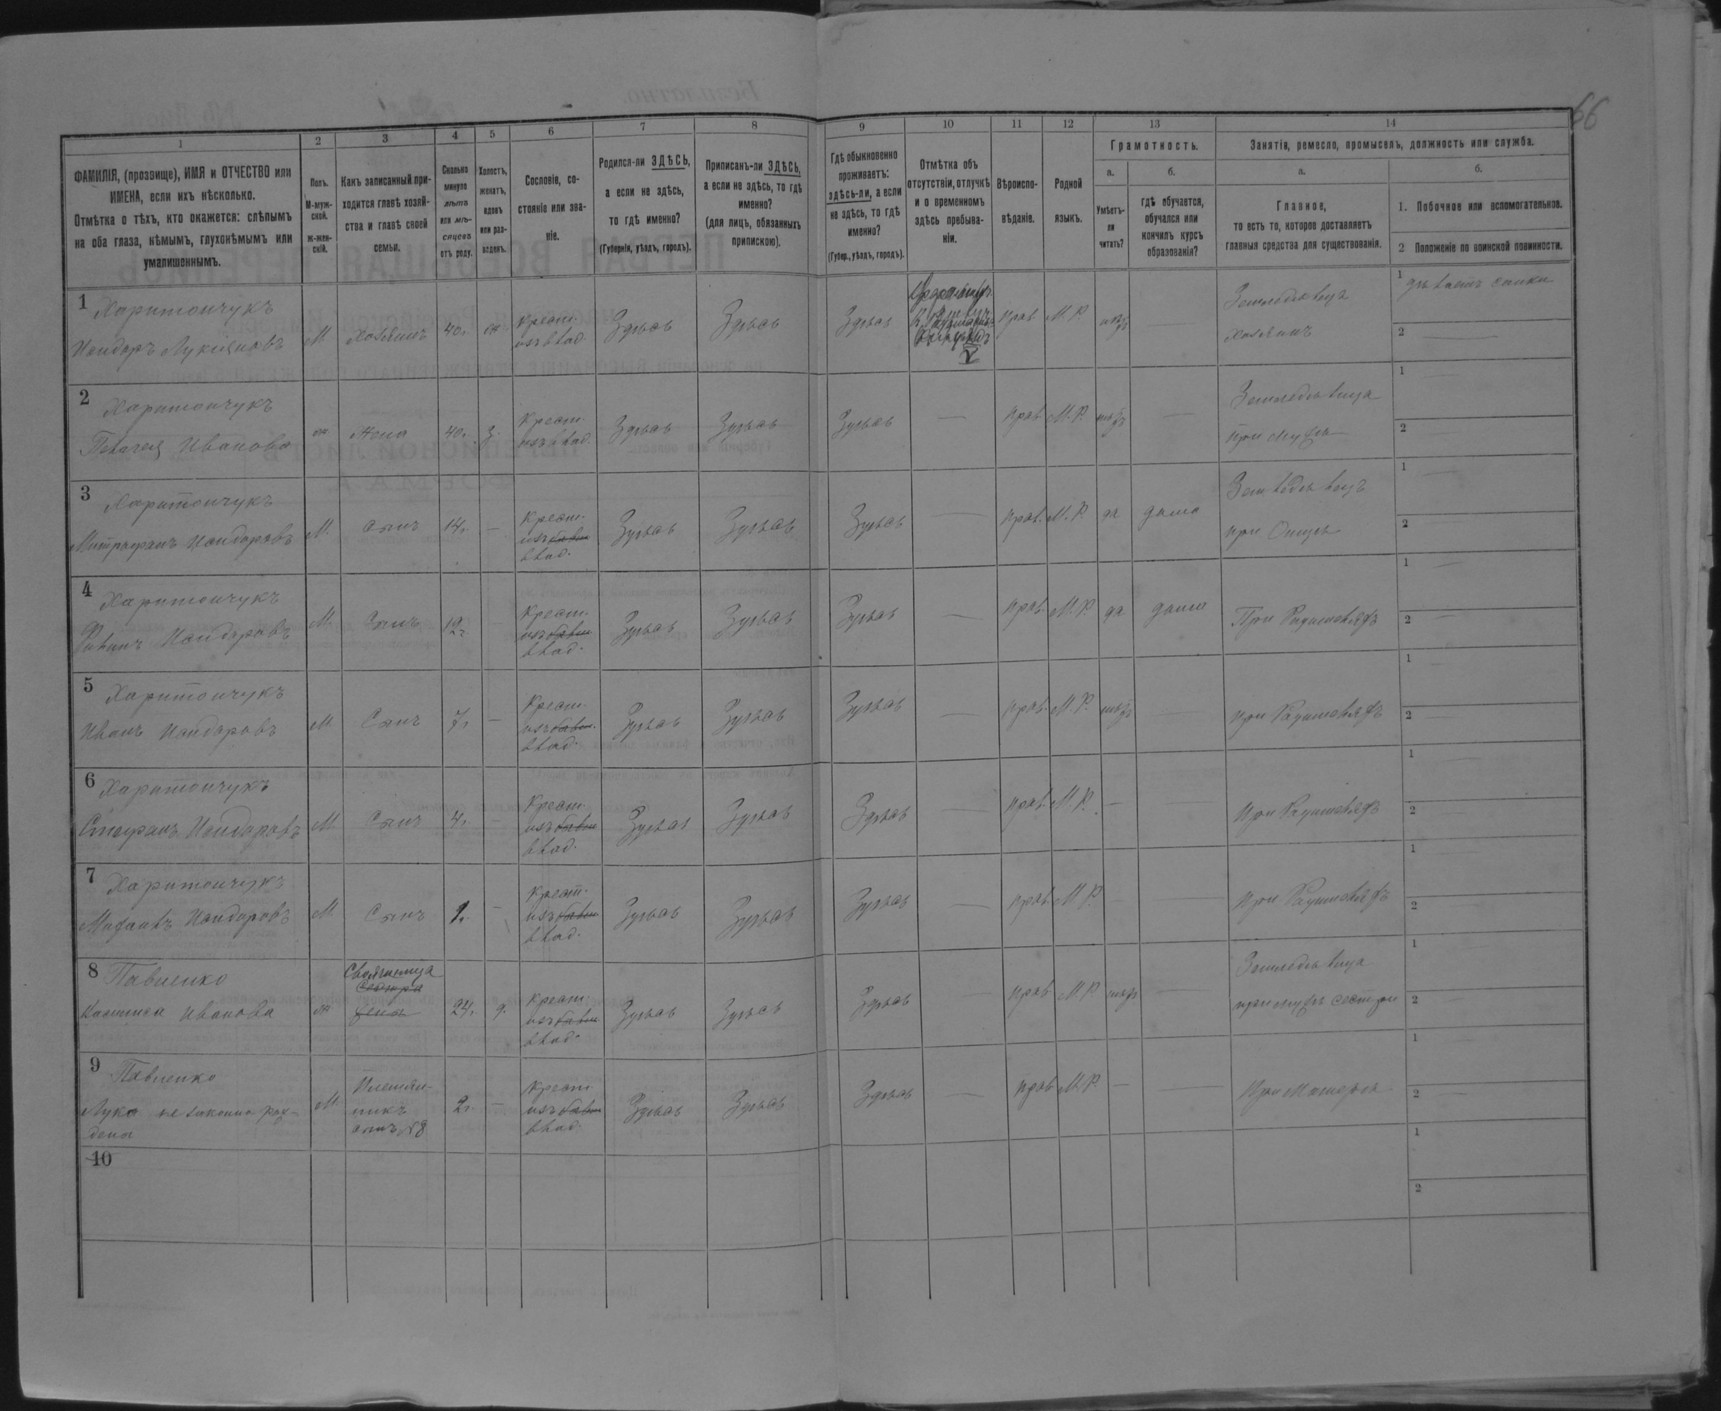 66
1 2 3 4 5 6 7 8 9 10 11 12 13 14
ФАМИЛІЯ, (прозвище), ИМЯ и ОТЧЕСТВО или
ИМЕНА, если ихъ нѣсколько.
Отмѣтка о тѣхъ, кто окажется: слѣпымъ
на оба глаза, нѣмымъ, глухонѣмымъ или
умалишеннымъ.
Полъ.
М-муж-
ской.
Ж-жен-
скій.
Какъ записанный при-
ходится главѣ хозяй-
ства и главѣ своей
семьи.
Сколько
минуло
лѣтъ
или мѣ-
сяцевъ
отъ роду.
Холостъ,
женатъ,
вдовъ
или раз-
веденъ.
Сословіе, со-
стояніе или зва-
ніе.
Родился-ли ЗДѢСЬ,
а если не здѣсь,
то гдѣ именно?
(Губернія, уѣздъ, городъ).
Приписанъ-ли ЗДѢСЬ,
а если не здѣсь, то гдѣ
именно?
(для лицъ, обязанныхъ
припискою).
Гдѣ обыкновенно
проживаетъ:
здѣсь-ли, а если
не здѣсь, то гдѣ
именно?
(Губер., уѣздъ, городъ).
Отмѣтка объ
отсутствіи, отлучкѣ
и о временномъ
здѣсь пребыва-
ніи.
Вѣроиспо-
вѣданіе.
Родной
языкъ.
Грамотность.
а.
Умѣетъ-
ли
читать?
б.
гдѣ обучается,
обучался или
кончилъ курсъ
образованія?
Занятія, ремесло, промыселъ, должность или служба.
а.
Главное,
то есть то, которое доставляетъ
главныя средства для существованія.
б.
1. Побочное или вспомогательное.
2 Положеніе по воинской повинности.
1 Харитончукъ
М Хозяинъ 40. ж Крест. Здѣсь Здѣсь Здѣсь прав М.Р. нѣтъ Земледѣлецъ
хозяинъ
1
2
2 Харитончукъ
Пелагея Иванова ж Жена 40. з. Крест. Здѣсь Здѣсь Здѣсь — прав М.Р. нѣтъ — Земледѣлица
при мужѣ
1
2
3 Харитончукъ
Митрофанъ М. сынъ 14. — Крест.
влад. Здѣсь Здѣсь Здѣсь — прав. М.Р. да дома
при Отцѣ
1
2
4 Харитончукъ
М. Сынъ 12. Крест.
влад. Здѣсь Здѣсь Здѣсь — прав. М.Р. да дома При Родителяхъ
1
2
5 Харитончукъ
Иванъ М Сынъ 7. — Крест.
влад. Здѣсь Здѣсь Здѣсь — прав. М.Р. нѣтъ — при Родителяхъ
1
2
6 Харитончукъ
Стефанъ М Сынъ 4. — Крест.
влад. Здѣсь Здѣсь Здѣсь — прав. М.Р. — при Родителяхъ
1
2
7 Харитончукъ
М Сынъ 1. — Крест.
влад. Здѣсь Здѣсь Здѣсь — прав М.Р. при Родителяхъ
1
2
8 Павленко
Иванова ж Свояченица 24. д. Крест.
влад. Здѣсь Здѣсь Здѣсь — прав М.Р. нѣтъ — Земледѣлица
1
2
9 Павленко
Лука не законно рож-
денъ М Племян-
никъ
сынъ №8 2. — Крест.
влад. Здѣсь Здѣсь Здѣсь — прав М.Р. — При Матери
1
2
10
1
2